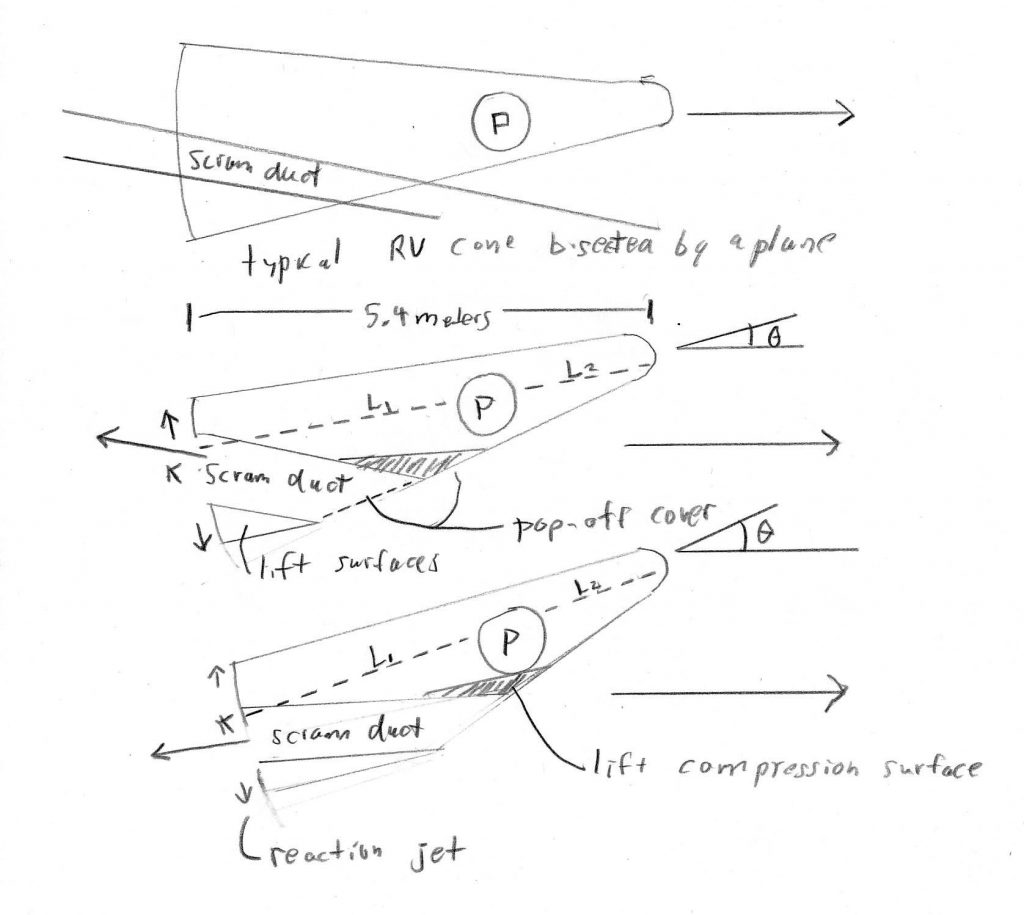 P
scram duct
typical RV cone bisected by a plane
5.4 meters
θ
L1 P L2
K scram duct
pop-off cover
lift surfaces
θ
L1 P L2
K
scram duct
lift compression surface
reaction jet